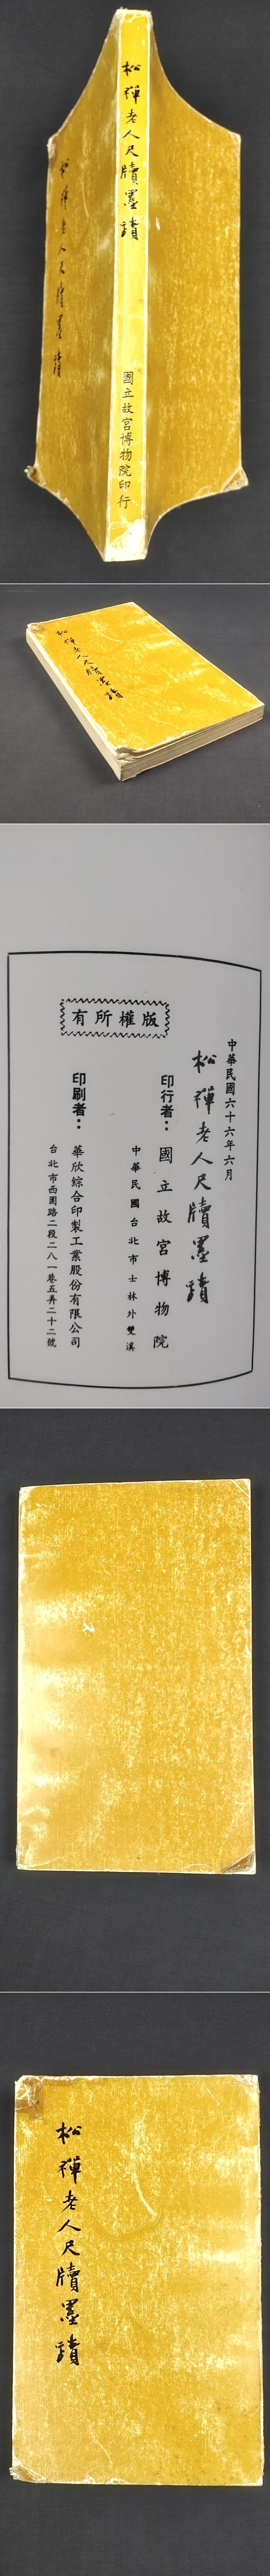 松禪老人尺牘墨蹟
國立故宮博物院印行
松禪老人尺牘墨蹟
松禪老人尺牘墨蹟
版權所有
中華民國六十六年六月
松禪老人尺牘墨蹟
印行者：國立故宮博物院
中華民國台北市士林外雙溪
印刷者：華欣綜合印製工業股份有限公司
台北市西園路二段二八一巷五弄二十二號
松禪老人尺牘墨蹟